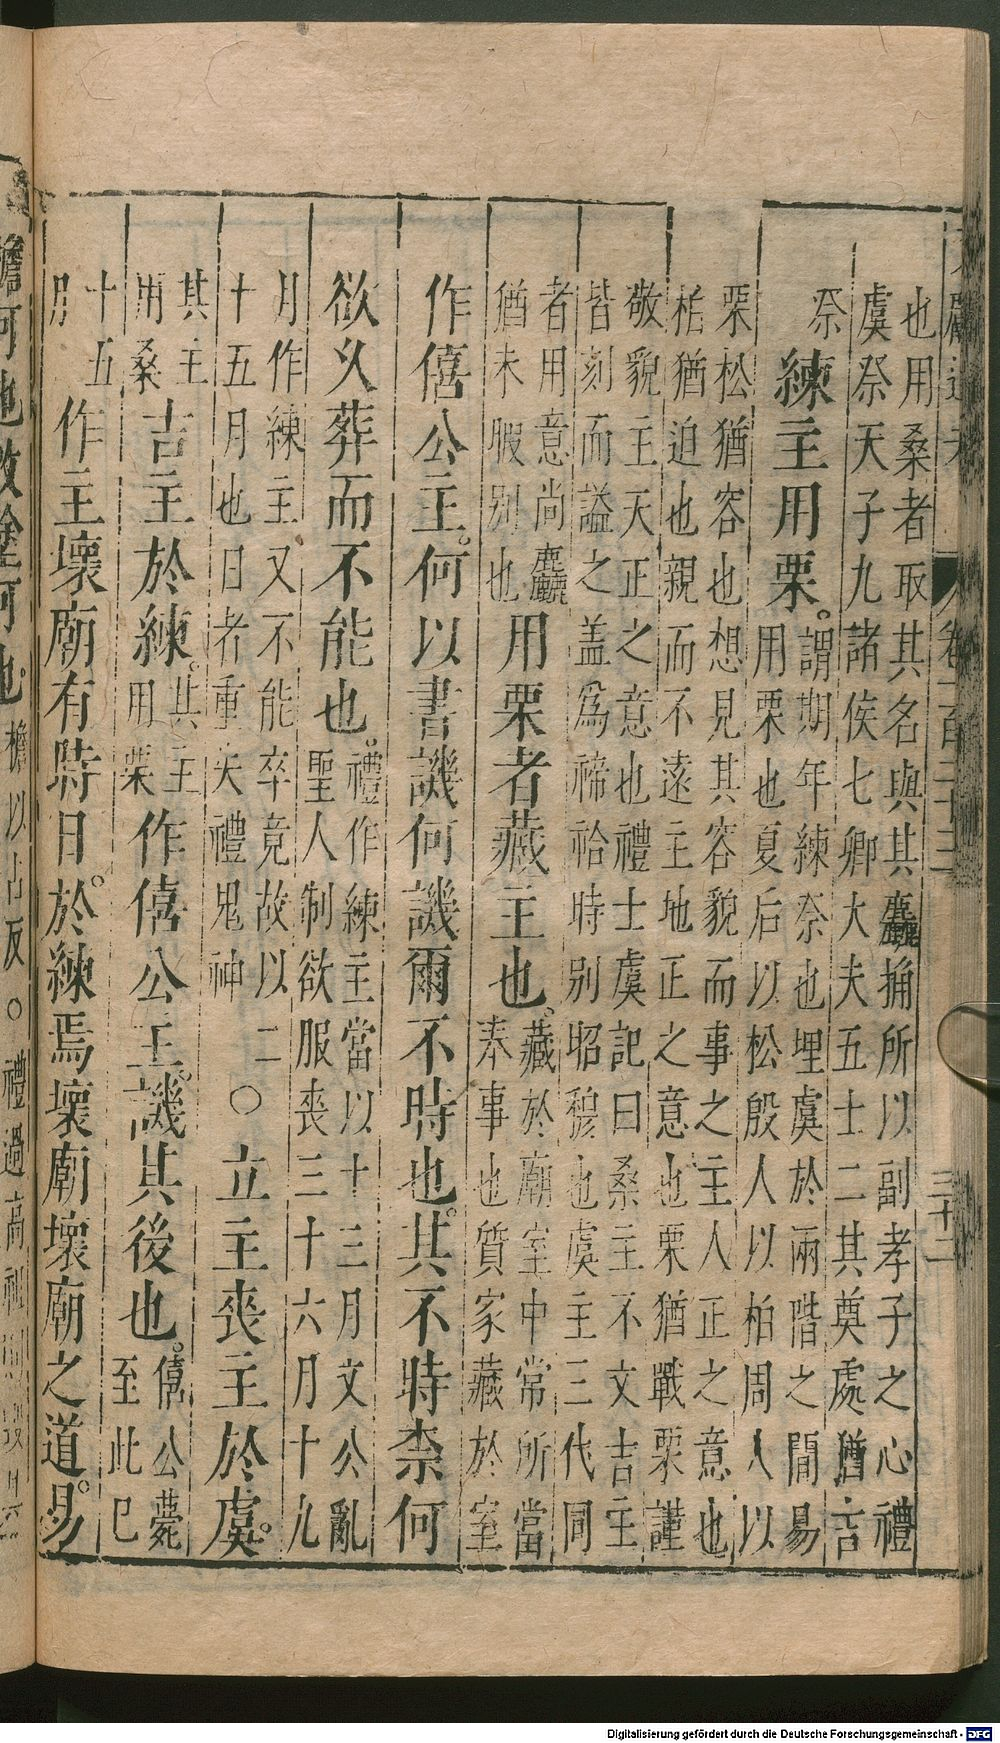 也用桑者取其名與其麤觕所以副孝子之心禮
虞祭天子九諸侯七卿大夫五士二其奠處猶吉
祭
練主用栗。
謂期年練祭也埋虞於兩階之間易
用栗也夏后以松殷人以柏周人以
栗松猶容也想見其容貌而事之主人正之意也
栢猶迫也親而不遠主地正之意也栗猶戰栗謹
敬貌主天正之意也禮士虞記曰桑主不文吉主
皆刻而謚之盖爲禘祫時别昭穆也虞主三代同
者用意尚麤
猶未暇别也
用栗者藏主也。
藏於廟室中常所當
奉事也質家藏於室
作僖公主。何以書譏何譏爾不時也。其不時柰何
欲久葬而不能也。
禮作練主當以十三月文公亂
聖人制欲服喪三十六月十九
月作練主又不能卒竟故以二
十五月也日者重失禮鬼神
○立主喪主於虞。
其主
用桑
吉主於練。
其主
用栗
作僖公主。譏其後也。
僖公薨
至此巳
十五
月
作主壞廟有時日。於練焉壞廟壞廟之道。易
檐可也改塗可也。
檐以占反○禮過高祖
三十二
Digitalisierung gefördert durch die Deutsche Forschungsgemeinschaft - DFG